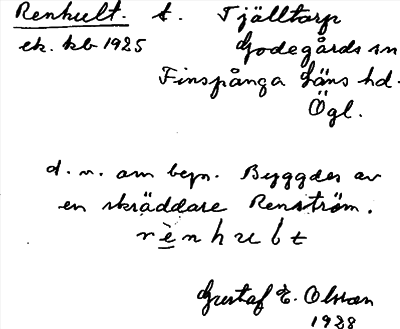 Renhult. t. Tjälltorp
ek. kb 1925 Godegårds sn
Finspånga läns hd.
Ögl.
d. n. om bepn. Byggdes av
en skräddare Renström.
rènhult
Gustaf E. Olsson
1928